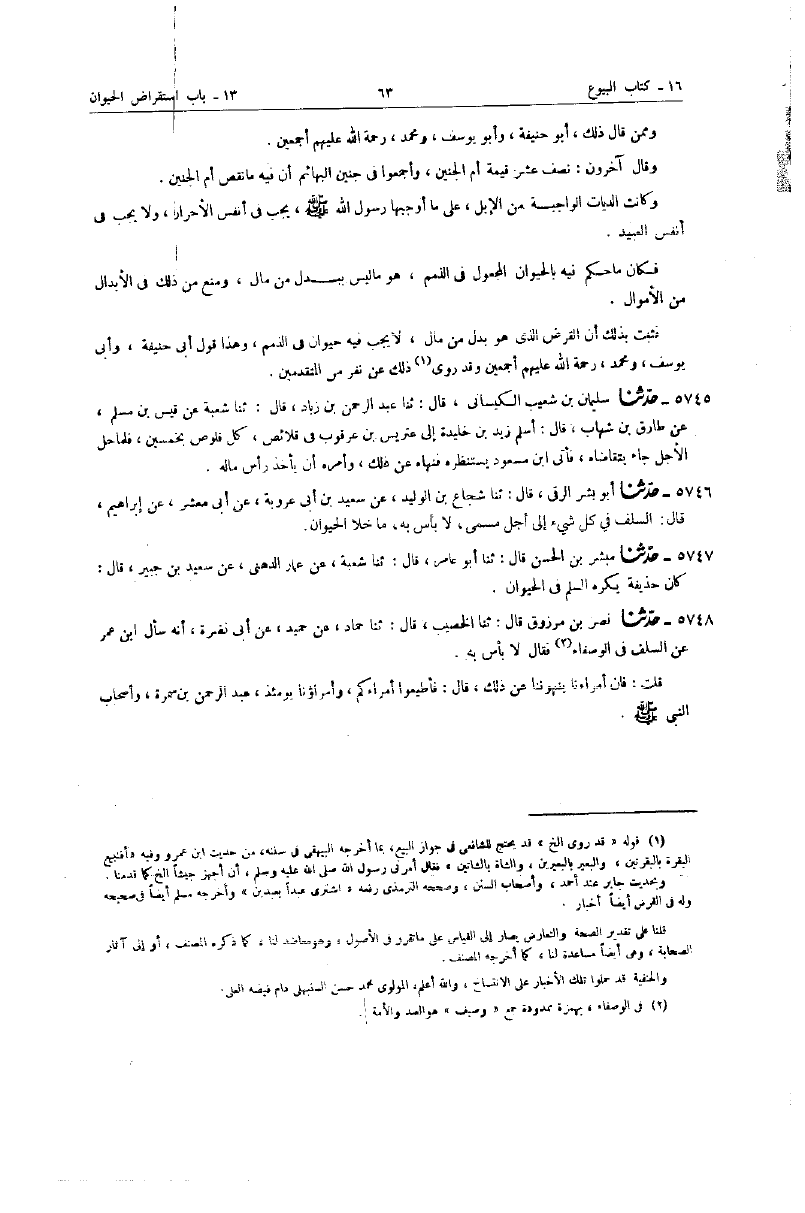 ١٦ - كتاب البيوع ٦٣ ١٣ - باب استقراض الحيوان
وممن قال ذلك ، أبو حنيفة ، وأبو يوسف ، ومحمد ، رحمة الله عليهم أجمعين .
وقال آخرون : نصف عشر قيمة أم الجنين ، وأجمعوا فى جنين البهائم أن فيه مانقص أم الجنين .
وكانت الديات الواجبة من الإبل ، على ما أوجبها رسول الله ﷺ ، يجب فى أنفس الأحرار ، ولا يجب فى
أنفس العبيد .
فكان ماحكم فيه بالحيوان المجعول فى الذمم ، هو ماليس ببدل من مال ، ومنع من ذلك فى الأبدال
من الأموال .
فثبت بذلك أن القرض الذى هو بدل من مال ، لايجب فيه حيوان فى الذمم ، وهذا قول أبى حنيفة ، وأبى
يوسف ، ومحمد ، رحمة الله عليهم أجمعين وقد روى(١) ذلك عن نفر من المتقدمين .
٥٧٤٥ - حدثنا سليمان بن شعيب الكيسانى ، قال : ثنا عبد الرحمن بن زياد ، قال : ثنا شعبة عن قيس بن مسلم ،
عن طارق بن شهاب ، قال : أسلم زيد بن خليدة إلى عتريس بن عرقوب فى قلائص ، كل قلوص بخمسين ، فلماحل
الأجل جاء يتقاضاه ، فأتى ابن مسعود يستنظره فنهاه عن ذلك ، وأمره أن يأخذ رأس ماله .
٥٧٤٦ - حدثنا أبو بشر الرقى ، قال : ثنا شجاع بن الوليد ، عن سعيد بن أبى عروبة ، عن أبى معشر ، عن إبراهيم ،
قال: السلف في كل شيء إلى أجل مسمى، لا بأس به، ما خلا الحيوان.
٥٧٤٧ - حدثنا مبشر بن الحسن قال : ثنا أبو عامر ، قال : ثنا شعبة ، عن عمار الدهنى ، عن سعيد بن جبير ، قال :
كان حذيفة يكره السلم فى الحيوان .
٥٧٤٨ - حدثنا نصر بن مرزوق قال : ثنا الخصيب ، قال : ثنا حماد ، عن حميد ، عن أبى نضرة ، أنه سأل ابن عمر
عن السلف فى الوصفاء(٢) فقال لا بأس به .
قلت : فان أمراءنا ينهوننا عن ذلك ، قال : فأطيعوا أمراءكم ، وأمراؤنا يومئذ ، عبد الرحمن بن سمرة ، وأصحاب
النبى ﷺ .
(١) قوله « قد روى الخ » قد يحتج للشافعى فى جواز البيع، بما أخرجه البيهقى فى سننه، من حديث ابن عمرو وفيه «أفنبيع
البقرة بالبقرتين ، والبعير بالبعيرين ، والشاة بالشاتين » فقال أمرنى رسول الله صلى الله عليه وسلم ، أن أجهز جيشاً الخ كما قدمنا .
وبحديث جابر عند أحمد ، وأصحاب السنن ، وصححه الترمذى رفعه « اشترى عبداً بعبدين » وأخرجه مسلم أيضاً فى صحيحه
وله فى القرض أيضاً أخبار .
قلنا على تقدير الصحة والتعارض يصار إلى القياس على ماتقرر فى الأصول ، وهو مساعد لنا ، كما ذكره المصنف ، أو إلى آثار
الصحابة ، وهى أيضاً مساعدة لنا ، كما أخرجه المصنف .
والحنفية قد حملوا تلك الأخبار على الانتساخ ، والله أعلم. المولوى محمد حسن السنبهلى دام فيضه العلى.
(٢) فى الوصفاء ، بهمزة ممدودة جمع « وصيف » هو العبد والأمة .